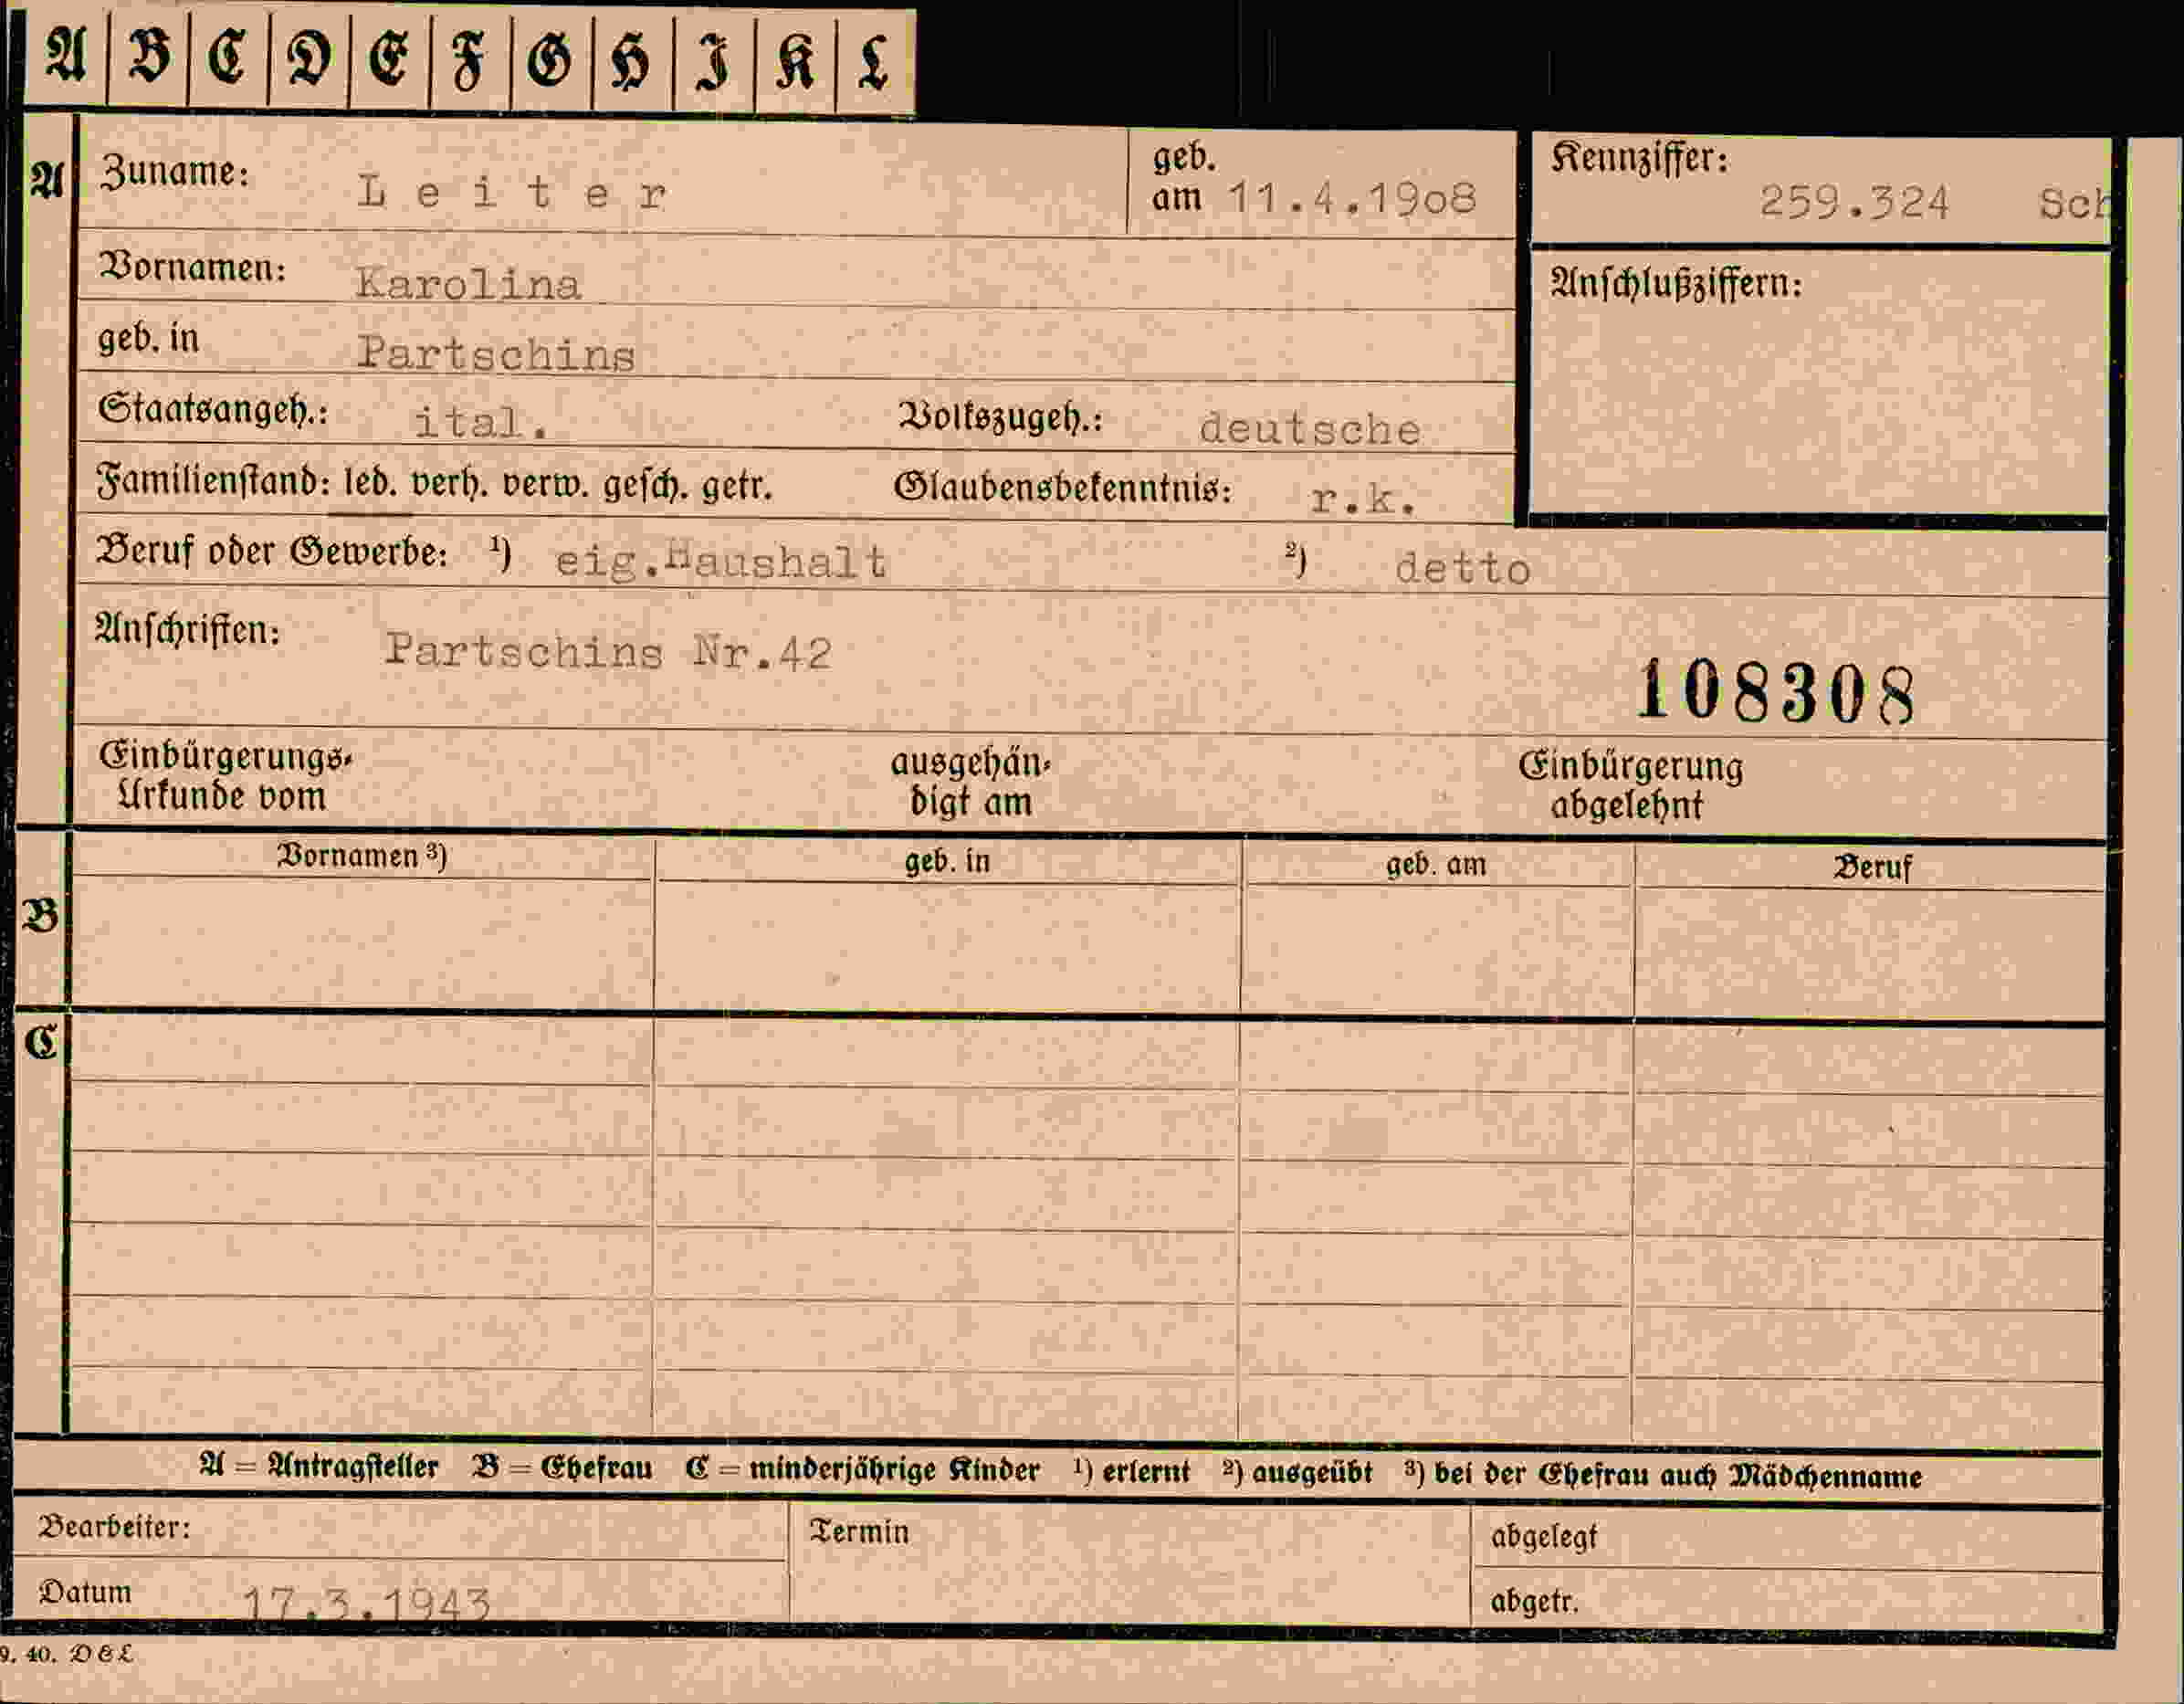 A B C D E F G H I K L
A Zuname: Leiter geb. am 11.4.1908
Kennziffer: 259.324 Sch
Vornamen: Karolina
Anschlußziffern:
geb. in Partschins
Staatsangeh.: ital. Volkszugeh.: deutsche
Familienstand: led. verh. verw. gesch. getr. Glaubensbekenntnis: r.k.
Beruf oder Gewerbe: ¹) eig.Haushalt ²) detto
Anschriften: Partschins Nr.42
108308
Einbürgerungs-Urkunde vom ausgehändigt am Einbürgerung abgelehnt
Vornamen ³) geb. in geb. am Beruf
B
C
A = Antragsteller B = Ehefrau C = minderjährige Kinder ¹) erlernt ²) ausgeübt ³) bei der Ehefrau auch Mädchenname
Bearbeiter: Termin abgelegt
Datum 17.3.1943 abgetr.
9. 40. D & L